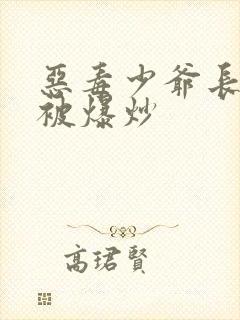 惡毒少爺長
被爆炒
高珺賢